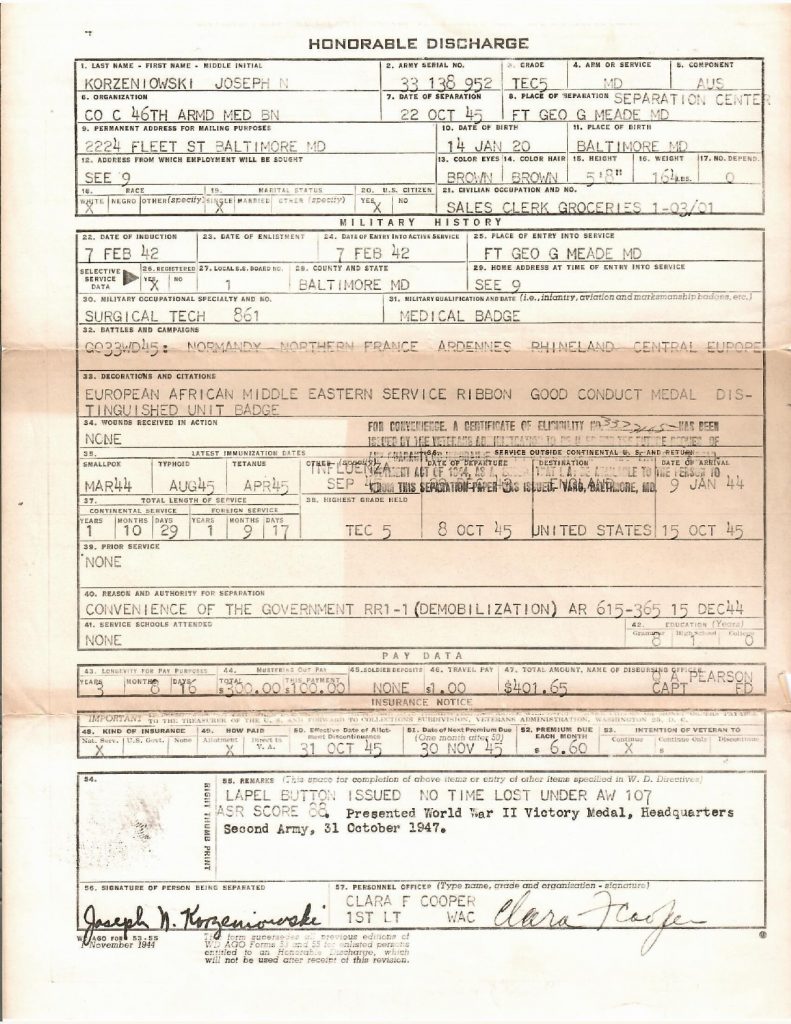 HONORABLE DISCHARGE
1. LAST NAME - FIRST NAME - MIDDLE INITIAL 2. ARMY SERIAL NO. 3. GRADE 4. ARM OR SERVICE 5. COMPONENT
KORZENIOWSKI JOSEPH N 33 138 952 TEC5 MD AUS
6. ORGANIZATION 7. DATE OF SEPARATION 8. PLACE OF SEPARATION SEPARATION CENTER
CO C 46TH ARMD MED BN 22 OCT 45 FT GEO G MEADE MD
9. PERMANENT ADDRESS FOR MAILING PURPOSES 10. DATE OF BIRTH 11. PLACE OF BIRTH
2224 FLEET ST BALTIMORE MD 14 JAN 20 BALTIMORE MD
12. ADDRESS FROM WHICH EMPLOYMENT WILL BE SOUGHT 13. COLOR EYES 14. COLOR HAIR 15. HEIGHT 16. WEIGHT 17. NO. DEPEND.
SEE 9 BROWN BROWN 5'8" LBS. 0
18. RACE 19. MARITAL STATUS 20. U.S. CITIZEN 21. CIVILIAN OCCUPATION AND NO.
WHITE NEGRO OTHER (specify) SINGLE MARRIED OTHER (specify) YES NO
X X X SALES CLERK GROCERIES 1-03/01
MILITARY HISTORY
22. DATE OF INDUCTION 23. DATE OF ENLISTMENT 24. DATE OF ENTRY INTO ACTIVE SERVICE 25. PLACE OF ENTRY INTO SERVICE
7 FEB 42 7 FEB 42 FT GEO G MEADE MD
SELECTIVE SERVICE DATA 26. REGISTERED 27. LOCAL S.S. BOARD NO. 28. COUNTY AND STATE 29. HOME ADDRESS AT TIME OF ENTRY INTO SERVICE
YES NO
X 1 BALTIMORE MD SEE 9
30. MILITARY OCCUPATIONAL SPECIALTY AND NO. 31. MILITARY QUALIFICATION AND DATE (i.e., infantry, aviation and marksmanship badges, etc.)
SURGICAL TECH 861 MEDICAL BADGE
32. BATTLES AND CAMPAIGNS
GO33WD45: NORMANDY NORTHERN FRANCE ARDENNES RHINELAND CENTRAL EUROPE
33. DECORATIONS AND CITATIONS
EUROPEAN AFRICAN MIDDLE EASTERN SERVICE RIBBON GOOD CONDUCT MEDAL DIS-
TINGUISHED UNIT BADGE
34. WOUNDS RECEIVED IN ACTION FOR CONVENIENCE, A CERTIFICATE OF ELIGIBILITY NO. HAS BEEN
NONE ISSUED BY THE VETERANS
35. LATEST IMMUNIZATION DATES 36. SERVICE OUTSIDE CONTINENTAL U. S. AND RETURN
SMALLPOX TYPHOID TETANUS OTHER (specify) INFLUENZA DATE OF DEPARTURE DESTINATION DATE OF ARRIVAL
MAR44 AUG45 APR45 SEP ENGLAND 9 JAN 44
WHOM THIS SEPARATION PAPER WAS ISSUED. BALTIMORE, MD.
37. TOTAL LENGTH OF SERVICE 38. HIGHEST GRADE HELD
CONTINENTAL SERVICE FOREIGN SERVICE
YEARS MONTHS DAYS YEARS MONTHS DAYS
1 10 29 1 9 17 TEC 5 8 OCT 45 UNITED STATES 15 OCT 45
39. PRIOR SERVICE
NONE
40. REASON AND AUTHORITY FOR SEPARATION
CONVENIENCE OF THE GOVERNMENT RR1-1 (DEMOBILIZATION) AR 615-365 15 DEC44
41. SERVICE SCHOOLS ATTENDED 42. EDUCATION (Years)
Grammar High School College
NONE 8 1 0
PAY DATA
43. LONGEVITY FOR PAY PURPOSES 44. MUSTERING OUT PAY 45. SOLDIER DEPOSITS 46. TRAVEL PAY 47. TOTAL AMOUNT, NAME OF DISBURSING OFFICER
YEARS MONTHS DAYS TOTAL THIS PAYMENT O A PEARSON
3 8 16 $300.00 $100.00 NONE $1.00 $401.65 CAPT FD
INSURANCE NOTICE
IMPORTANT
TO THE TREASURER OF THE U. S. AND FORWARD TO COLLECTIONS SUBDIVISION, VETERANS ADMINISTRATION, WASHINGTON 25, D. C.
48. KIND OF INSURANCE 49. HOW PAID 50. Effective Date of Allotment Discontinuance 51. Date of Next Premium Due (One month after 50) 52. PREMIUM DUE EACH MONTH 53. INTENTION OF VETERAN TO
Nat. Serv. U.S. Govt. None Allotment Direct to V. A. Continue Continue Only Discontinue
X X 31 OCT 45 30 NOV 45 $ 6.60 X $
54. 55. REMARKS (This space for completion of above items or entry of other items specified in W. D. Directives)
RIGHT THUMB PRINT
LAPEL BUTTON ISSUED NO TIME LOST UNDER AW 107
ASR SCORE 88. Presented World War II Victory Medal, Headquarters
Second Army, 31 October 1947.
56. SIGNATURE OF PERSON BEING SEPARATED 57. PERSONNEL OFFICER (Type name, grade and organization - signature)
CLARA F COOPER
Joseph N. Korzeniowski 1ST LT WAC Clara F Cooper
WD AGO FORM 53-55
1 November 1944
This form supersedes all previous editions of
WD AGO Forms 53 and 55 for enlisted persons
entitled to an Honorable Discharge, which
will not be used after receipt of this revision.